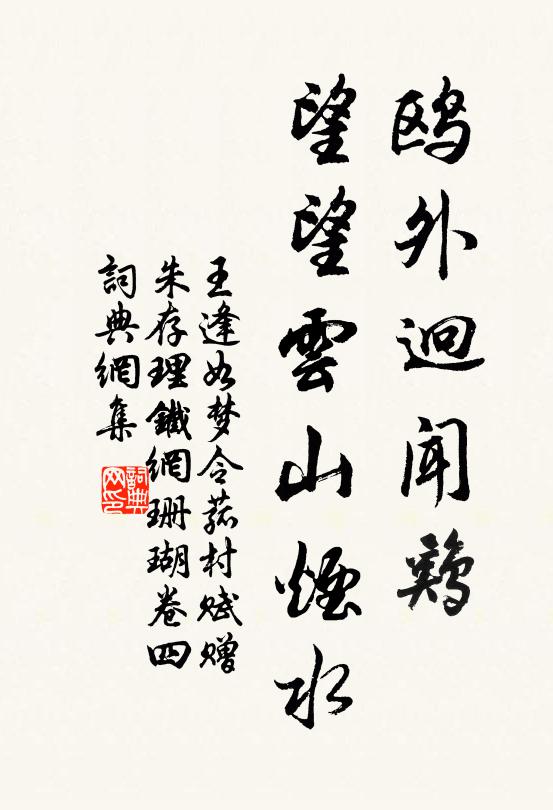 鷗外迥聞鷄
望望雲山煙水
王逢如梦令菰村賦贈
朱存理鐵網珊瑚卷四
詞典網集
詞典网印